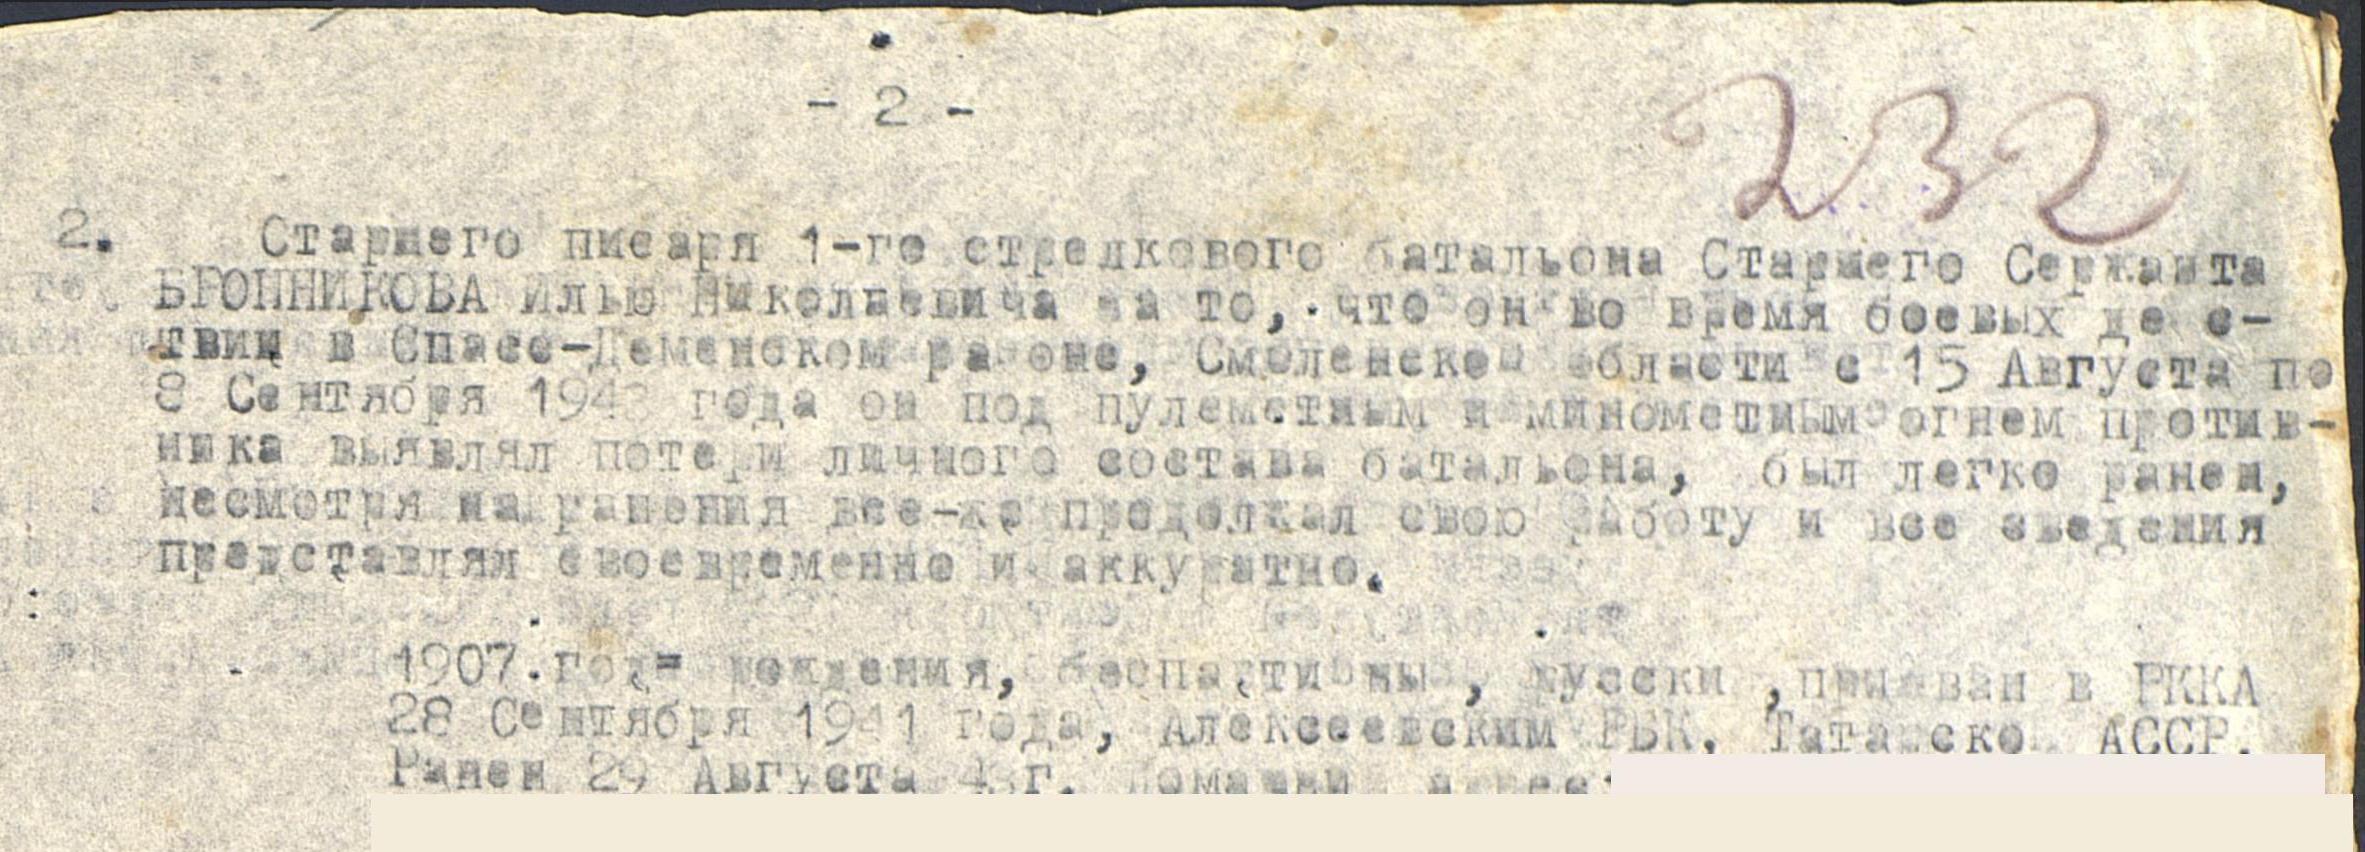 - 2 -
232
2. Старшего писаря 1-го стрелкового батальона Старшего Сержанта
БРОННИКОВА Илью Николаевича за то, что он во время боевых де с-
твий в Спасс-Деменском районе, Смоленской области с 15 Августа по
8 Сентября 1943 года он под пулеметным и минометным огнем против-
ника выявлял потери личного состава батальона, был легко ранен,
несмотря на ранения все-же продолжал свою работу и все сведения
представлял своевременно и аккуратно.
1907.год= рождения, беспартийный, русский, призван в РККА
28 Сентября 1941 года, Алексеевским РВК, Татарской АССР.
Ранен 29 Августа 43г. Домашний адрес: